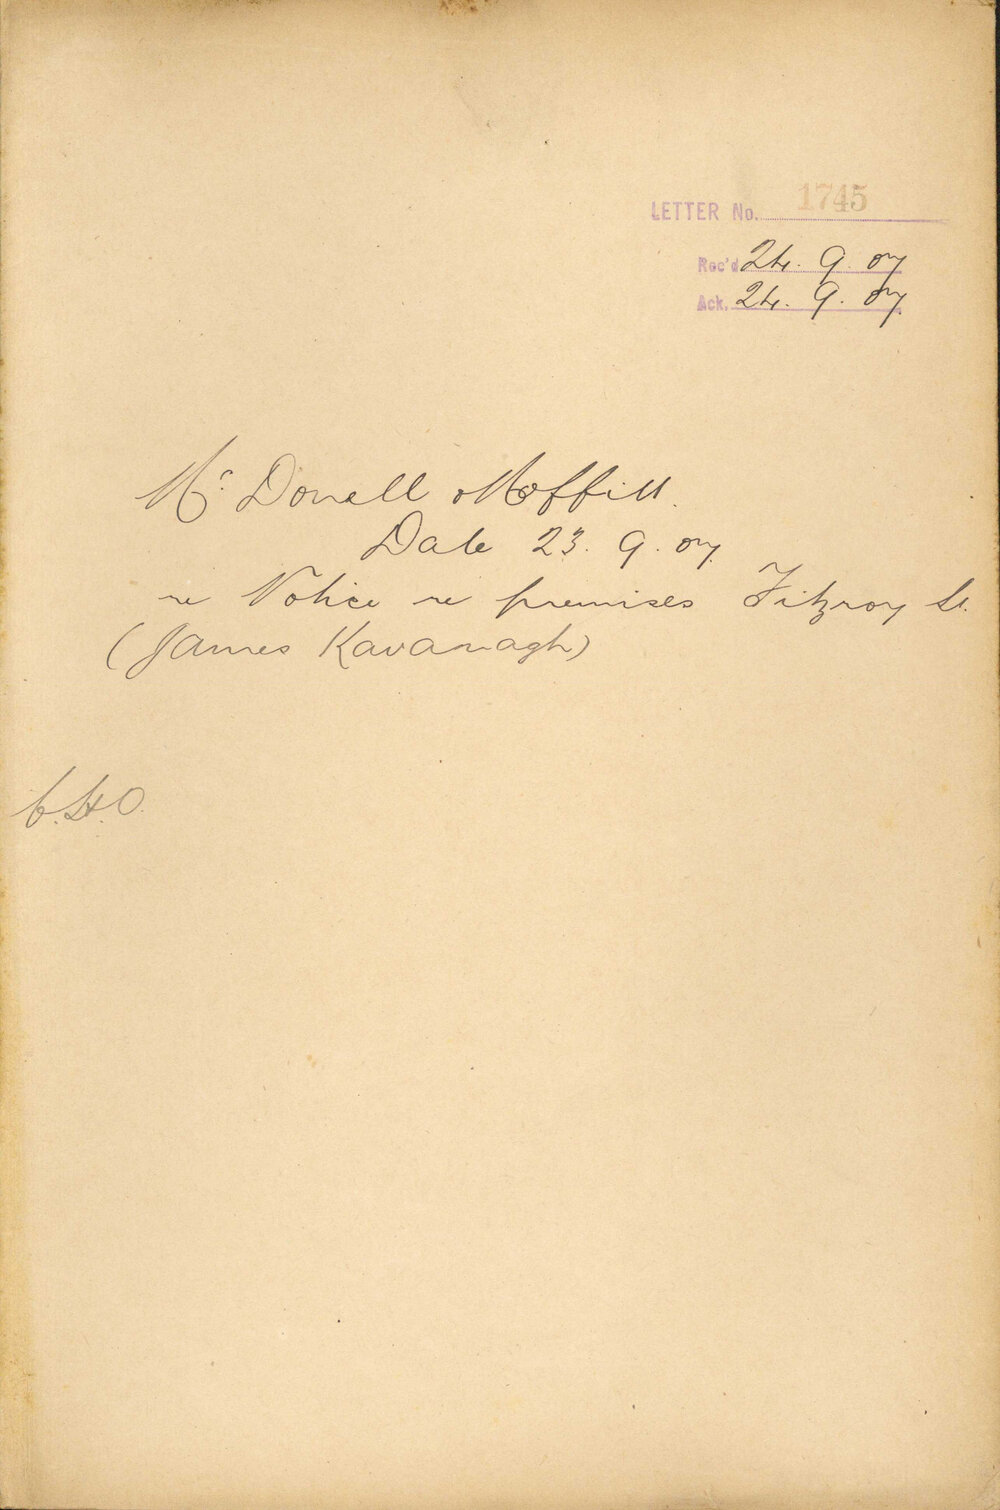 LETTER No. 1745
Rec'd 24. 9. 07
Ack. 24. 9. 07
McDonell Moffitt.
Date 23. 9. 07.
re Notice re premises Fitzroy St.
(James Kavanagh)
C.H.O.